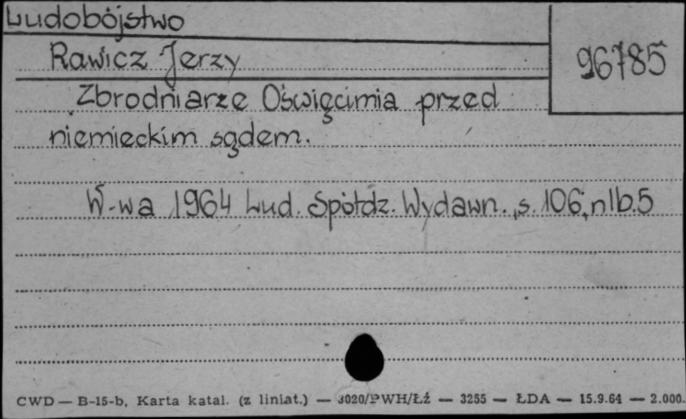 Ludobójstwo
Rawicz Jerzy
96785
Zbrodniarze Oświęcimia przed
niemieckim sądem.
W-wa 1964 Lud. Spółdz. Wydawn., s. 106, nlb. 5
CWD — B-15-b, Karta katal. (z liniat.) — 3020/PWH/Łź — 3255 — ŁDA — 15.9.64 — 2.000.